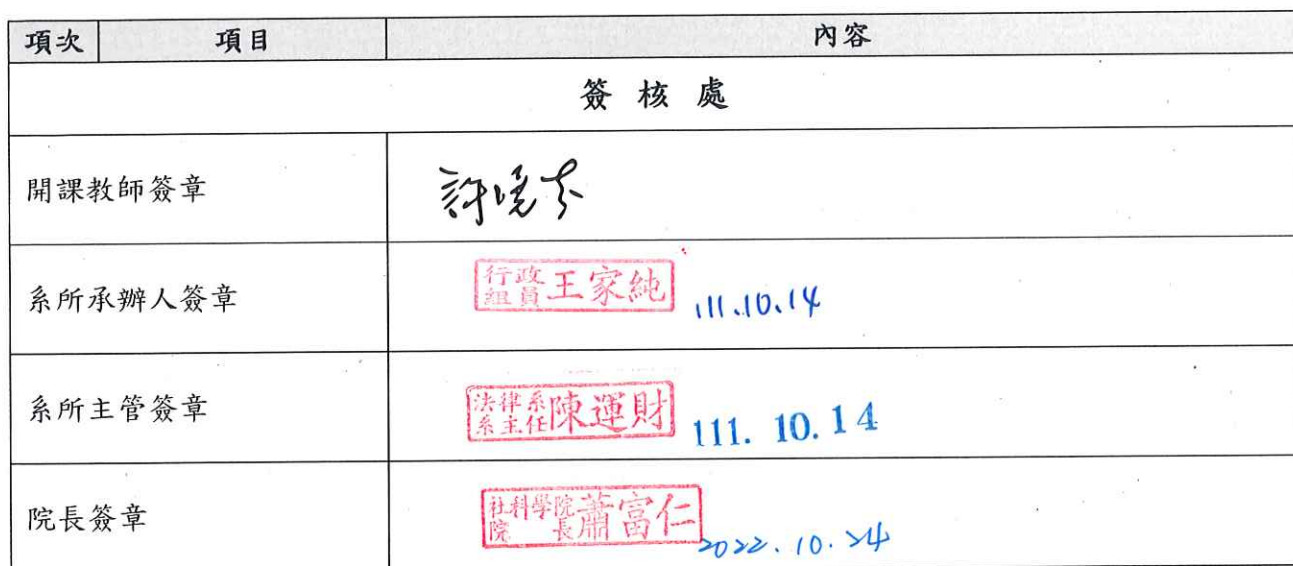 項次 項目 內容
簽核處
開課教師簽章 許曉芬
系所承辦人簽章 行政組員 王家純 111.10.14
系所主管簽章 法律系系主任 陳運財 111. 10. 14
院長簽章 社科學院院長 蕭富仁 2022.10.24